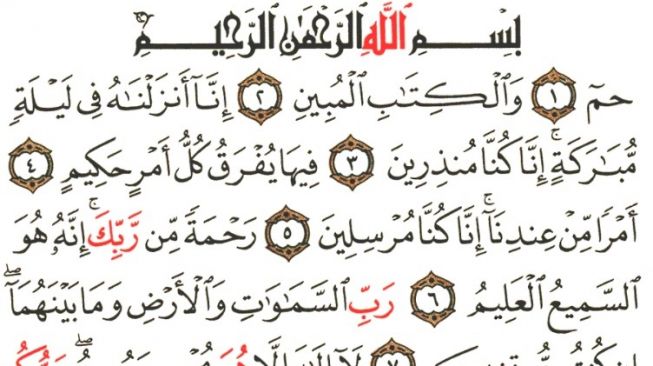 بِسْمِ ٱللَّهِ ٱلرَّحْمَٰنِ ٱلرَّحِيمِ
حمٓ ١ وَٱلْكِتَٰبِ ٱلْمُبِينِ ٢ إِنَّآ أَنزَلْنَٰهُ فِى لَيْلَةٍ
مُّبَٰرَكَةٍ ۚ إِنَّا كُنَّا مُنذِرِينَ ٣ فِيهَا يُفْرَقُ كُلُّ أَمْرٍ حَكِيمٍ ٤
أَمْرًا مِّنْ عِندِنَآ ۚ إِنَّا كُنَّا مُرْسِلِينَ ٥ رَحْمَةً مِّن رَّبِّكَ ۚ إِنَّهُۥ هُوَ
ٱلسَّمِيعُ ٱلْعَلِيمُ ٦ رَبِّ ٱلسَّمَٰوَٰتِ وَٱلْأَرْضِ وَمَا بَيْنَهُمَآ ۖ